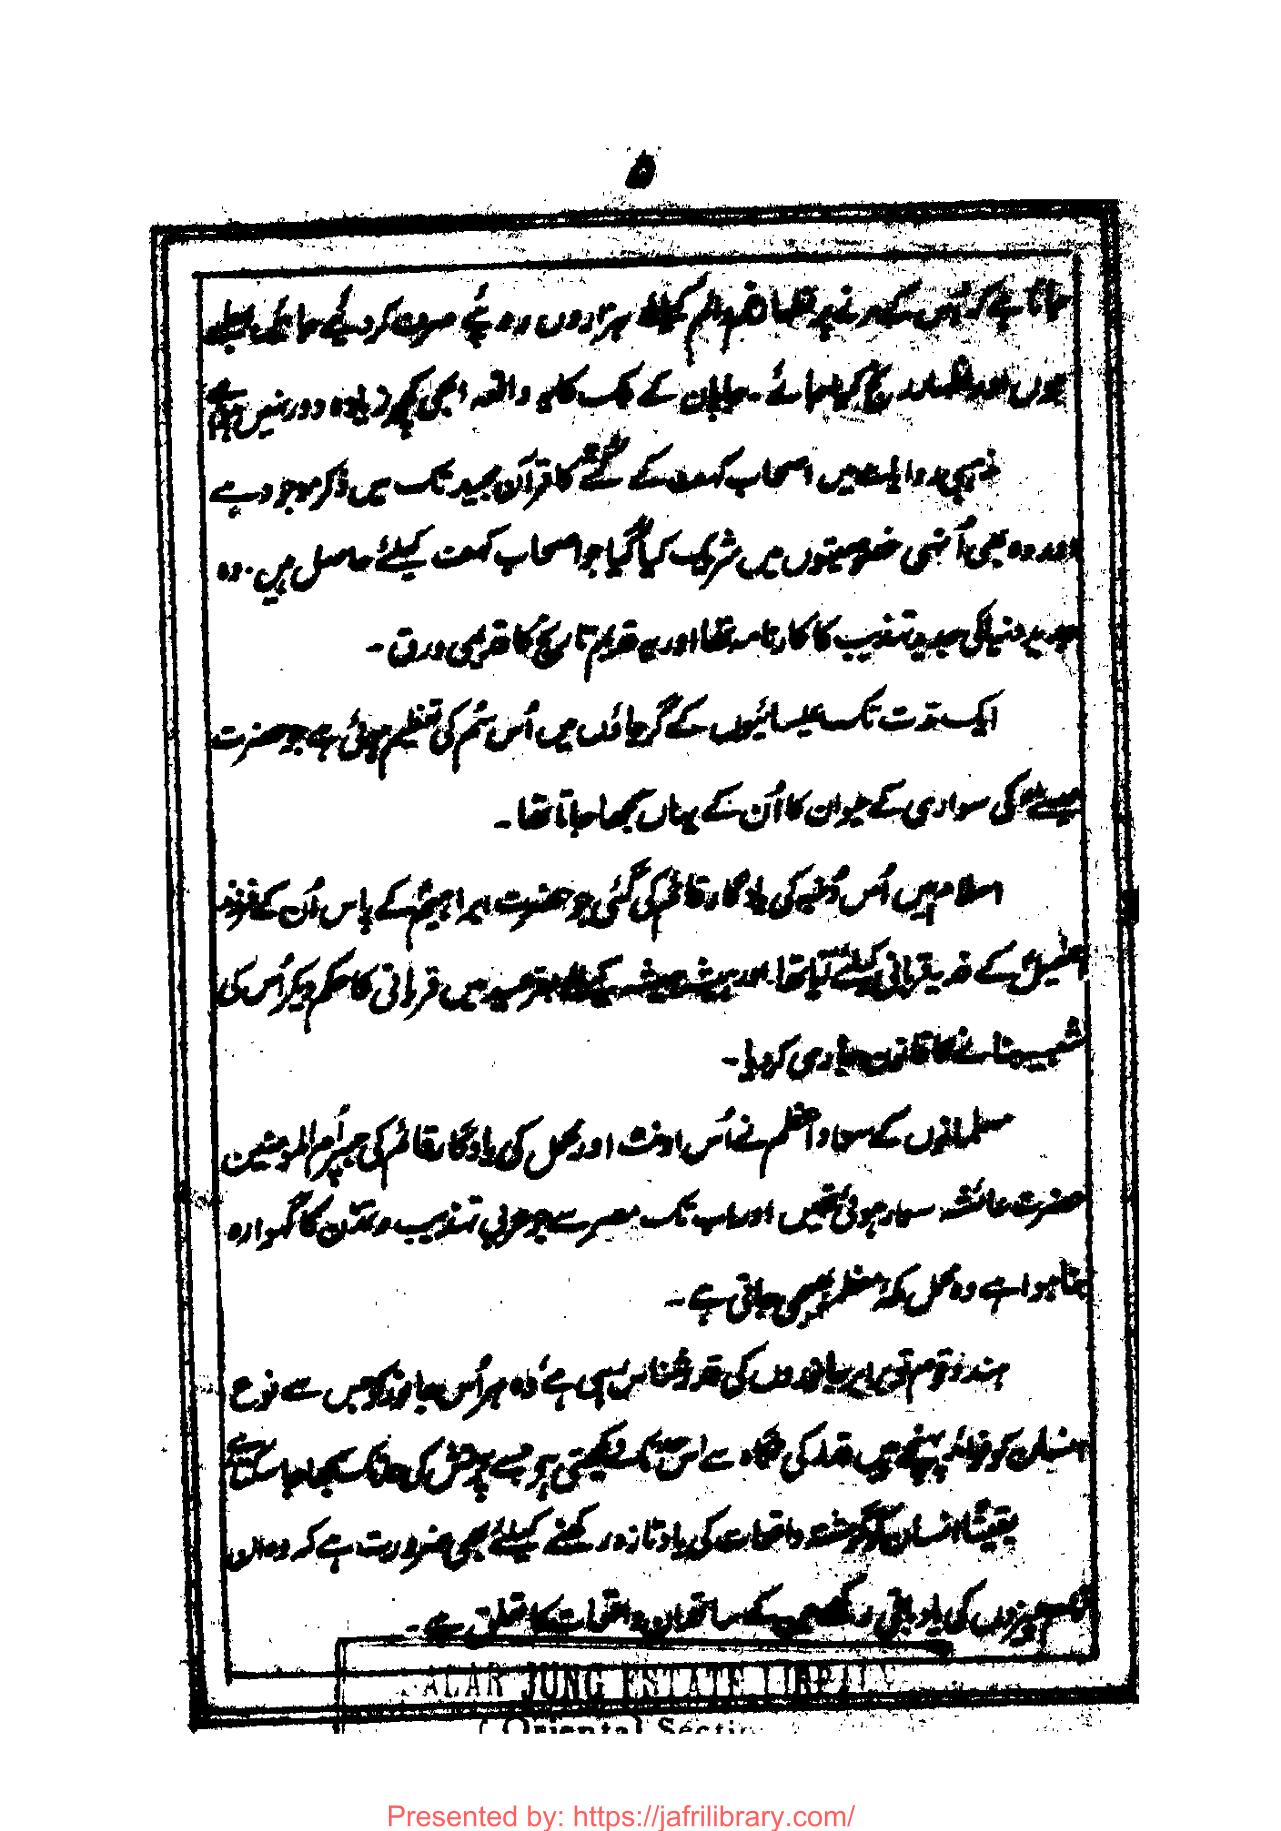 ۵
جاتا ہے کہ اُس کے مرنے پر اظہار غم والم کیلئے ہزاروں روپئے صرف کر دیئے جائیں جلسے
ہوں اور اظہار رنج کیا جائے۔ جاپان کے کتے کا یہ واقعہ ابھی کچھ زیادہ دور نہیں ہے
مذہبی روایات میں اصحاب کہف کے کتے کا قرآن مجید تک میں ذکر موجود ہے
اور وہ بھی اُنہی خصوصیتوں میں شریک کیا گیا جو اصحاب کہف کیلئے حاصل ہیں۔ وہ
جدید دنیا کی جدید تہذیب کا کارنامہ تھا اور یہ قدیم تاریخ کا قدیمی ورق۔
ایک مدّت تک عیسائیوں کے گرجاؤں میں اُس سُم کی تعظیم ہوئی ہے جو حضرت
عیسےٰؑ کی سواری کے حیوان کا اُن کے یہاں سمجھا جاتا تھا۔
اسلام میں اُس دُنبہ کی یادگار قائم کی گئی جو حضرت ابراہیمؑ کے پاس اُن کے فرزند
اسمٰعیلؑ کے فدیہ قربانی کیلئے آیا تھا۔ اور ہمیشہ ہمیشہ کیلئے بقرعید میں قربانی کا حکم دیکر اُس کی
شبیہ بنانے کا قانون جاری کردیا۔
مسلمانوں کے سواد اعظم نے اُس اونٹ اور محمل کی یادگار قائم کی جسپر اُم المومنین
حضرت عائشہ سوار ہوئی تھیں اور اب تک مصر سے جو عربی تہذیب و تمدّن کا گہوارہ
بنا ہوا ہے وہ محمل مکہٴ معظمہ بھیجی جاتی ہے۔
ہندو قوم تو ہر جانوروں کی قدر شناس رہی ہے وہ ہر اُس جانور کو جس سے نوع
انسان کو فوائد پہنچے ہیں قدر کی نگاہ سے اس حد تک دیکھتی ہے جسے پرستش کی حد تک سمجھا جا سکتا ہے
یقیناً انسان کو گذشتہ واقعات کی یاد تازہ رکھنے کیلئے بھی ضرورت ہے کہ وہ اُن
تمام چیزوں کی یاد باقی رکھے جن کے ساتھ اُن واقعات کا تعلق ہے۔
ALAR JUNG ESTATE LIBRARY
(Oriental Section
Presented by: https://jafrilibrary.com/